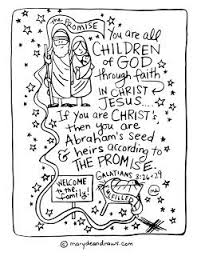 the PROMISE
You are all
CHILDREN
of GOD
through faith
IN CHRIST
JESUS...
If you are CHRIST'S,
then you are
Abraham's Seed
& heirs according to
THE PROMISE.
GALATIANS 3:26+29
WELCOME
to the
family!
KILLER
© marydeandraws.com